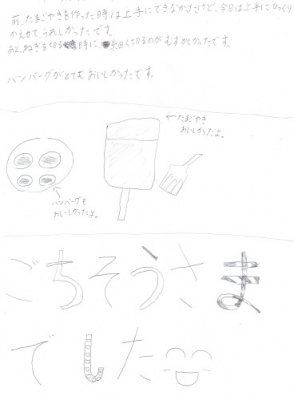 前、たまごやきを作った時は上手にできなかったけど、今日は上手にひっくり
かえせて、うれしかったです。
あと、ねぎを切る時に、細く切るのがむずかしかったです。
ハンバーグがとてもおいしかったです。
←たまごやき
おいしかったよ。
ハンバーグも
おいしかったよ。
ごちそうさま
でした